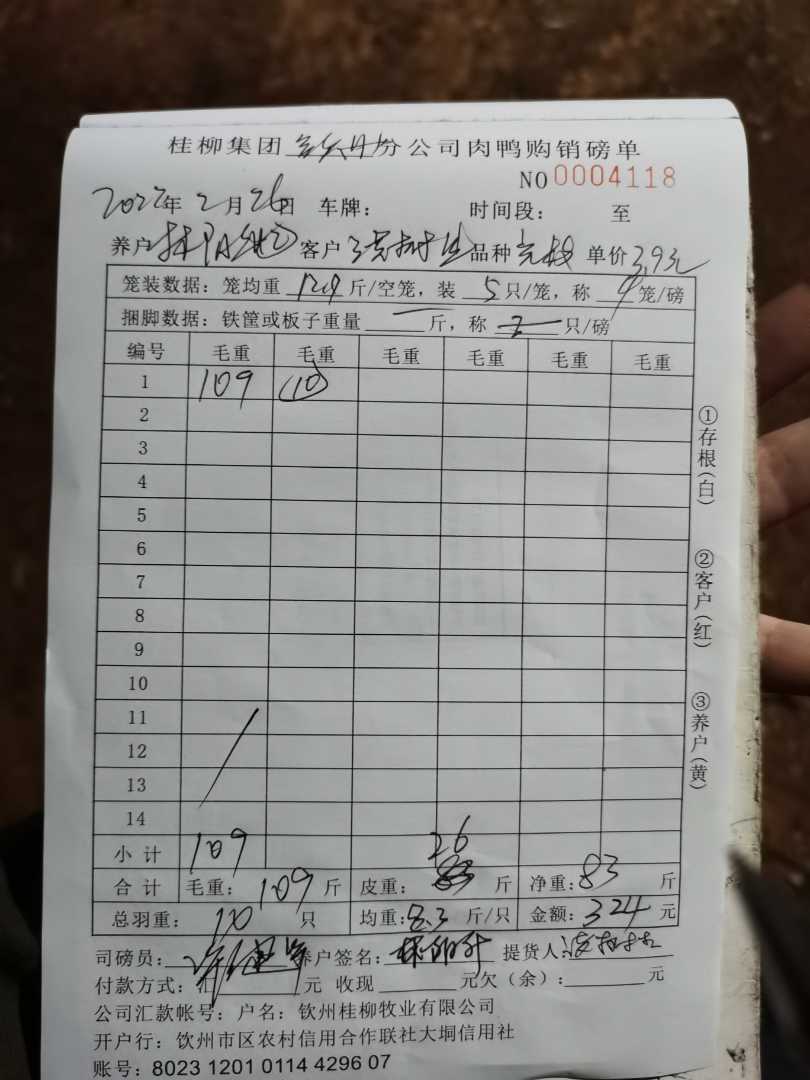 桂柳集团 公司肉鸭购销磅单
NO 0004118
2022年 2月26日 车牌： 时间段： 至
养户 客户 品种 单价3.9元
笼装数据：笼均重 12.9 斤/空笼，装 5 只/笼，称 笼/磅
捆脚数据：铁筐或板子重量 斤，称 只/磅
编号 毛重 毛重 毛重 毛重 毛重 毛重
1 109 (10)
2
3
4
5
6
7
8
9
10
11
12
13
14
小计 109
合计 毛重：109斤 皮重：26 斤 净重：83 斤
总羽重：10 只 均重：8.3 斤/只 金额：324 元
司磅员： 养户签名： 提货人：
付款方式：汇 元 收现 元欠（余）： 元
公司汇款帐号：户名：钦州桂柳牧业有限公司
开户行：钦州市区农村信用合作联社大垌信用社
账号：8023 1201 0114 4296 07
①存根（白）
②客户（红）
③养户（黄）